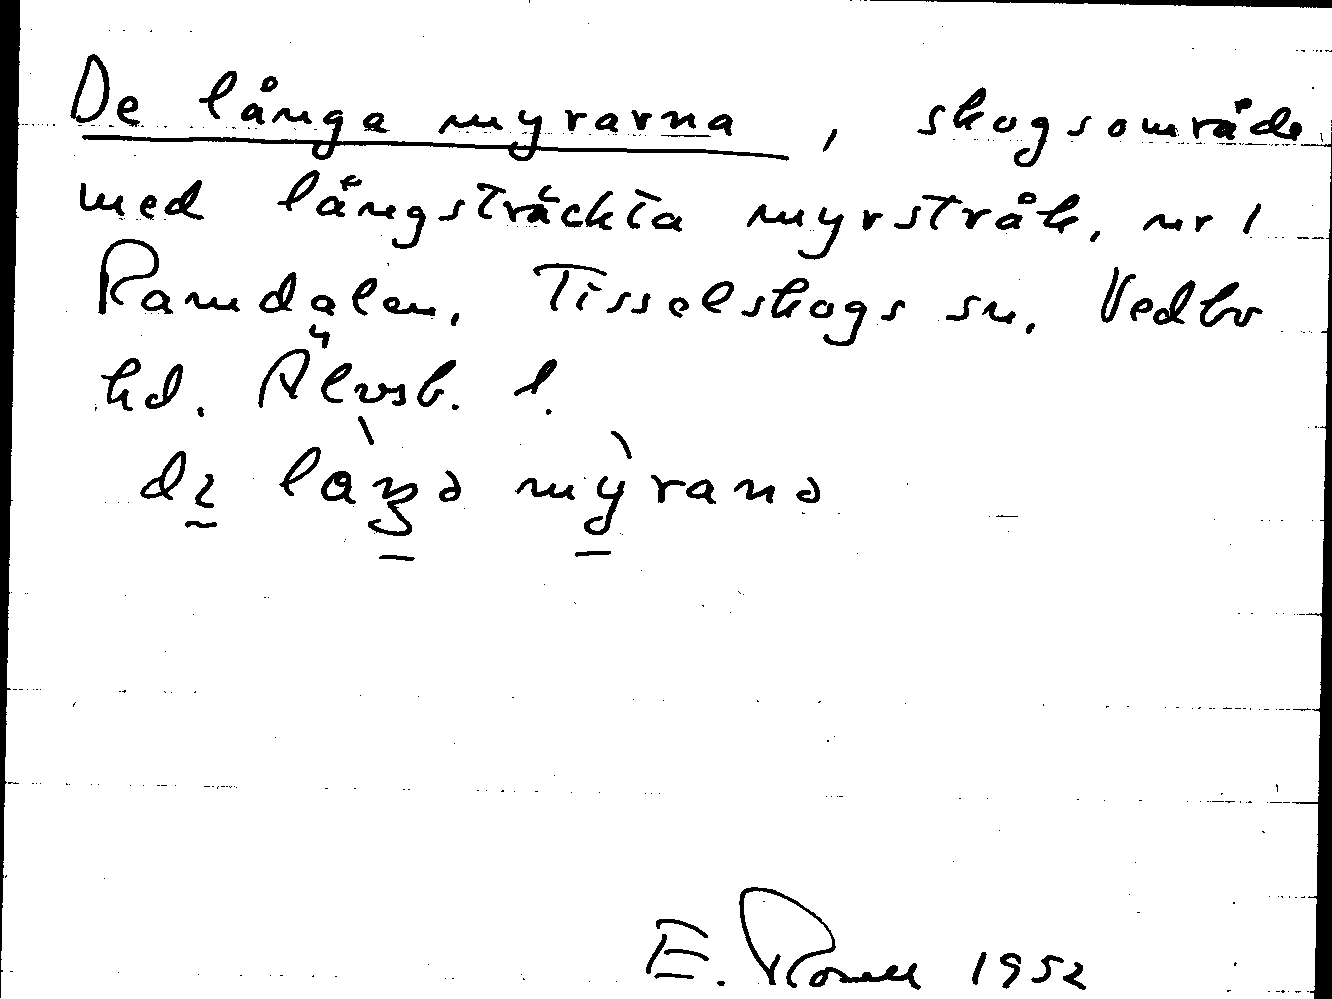 De långa myrarna, skogsområde
med långsträckta myrstråk, nr 1
Ramdalen, Tisselskogs sn, Vedbo
hd. Älvsb. l.
myrana
E. 1952